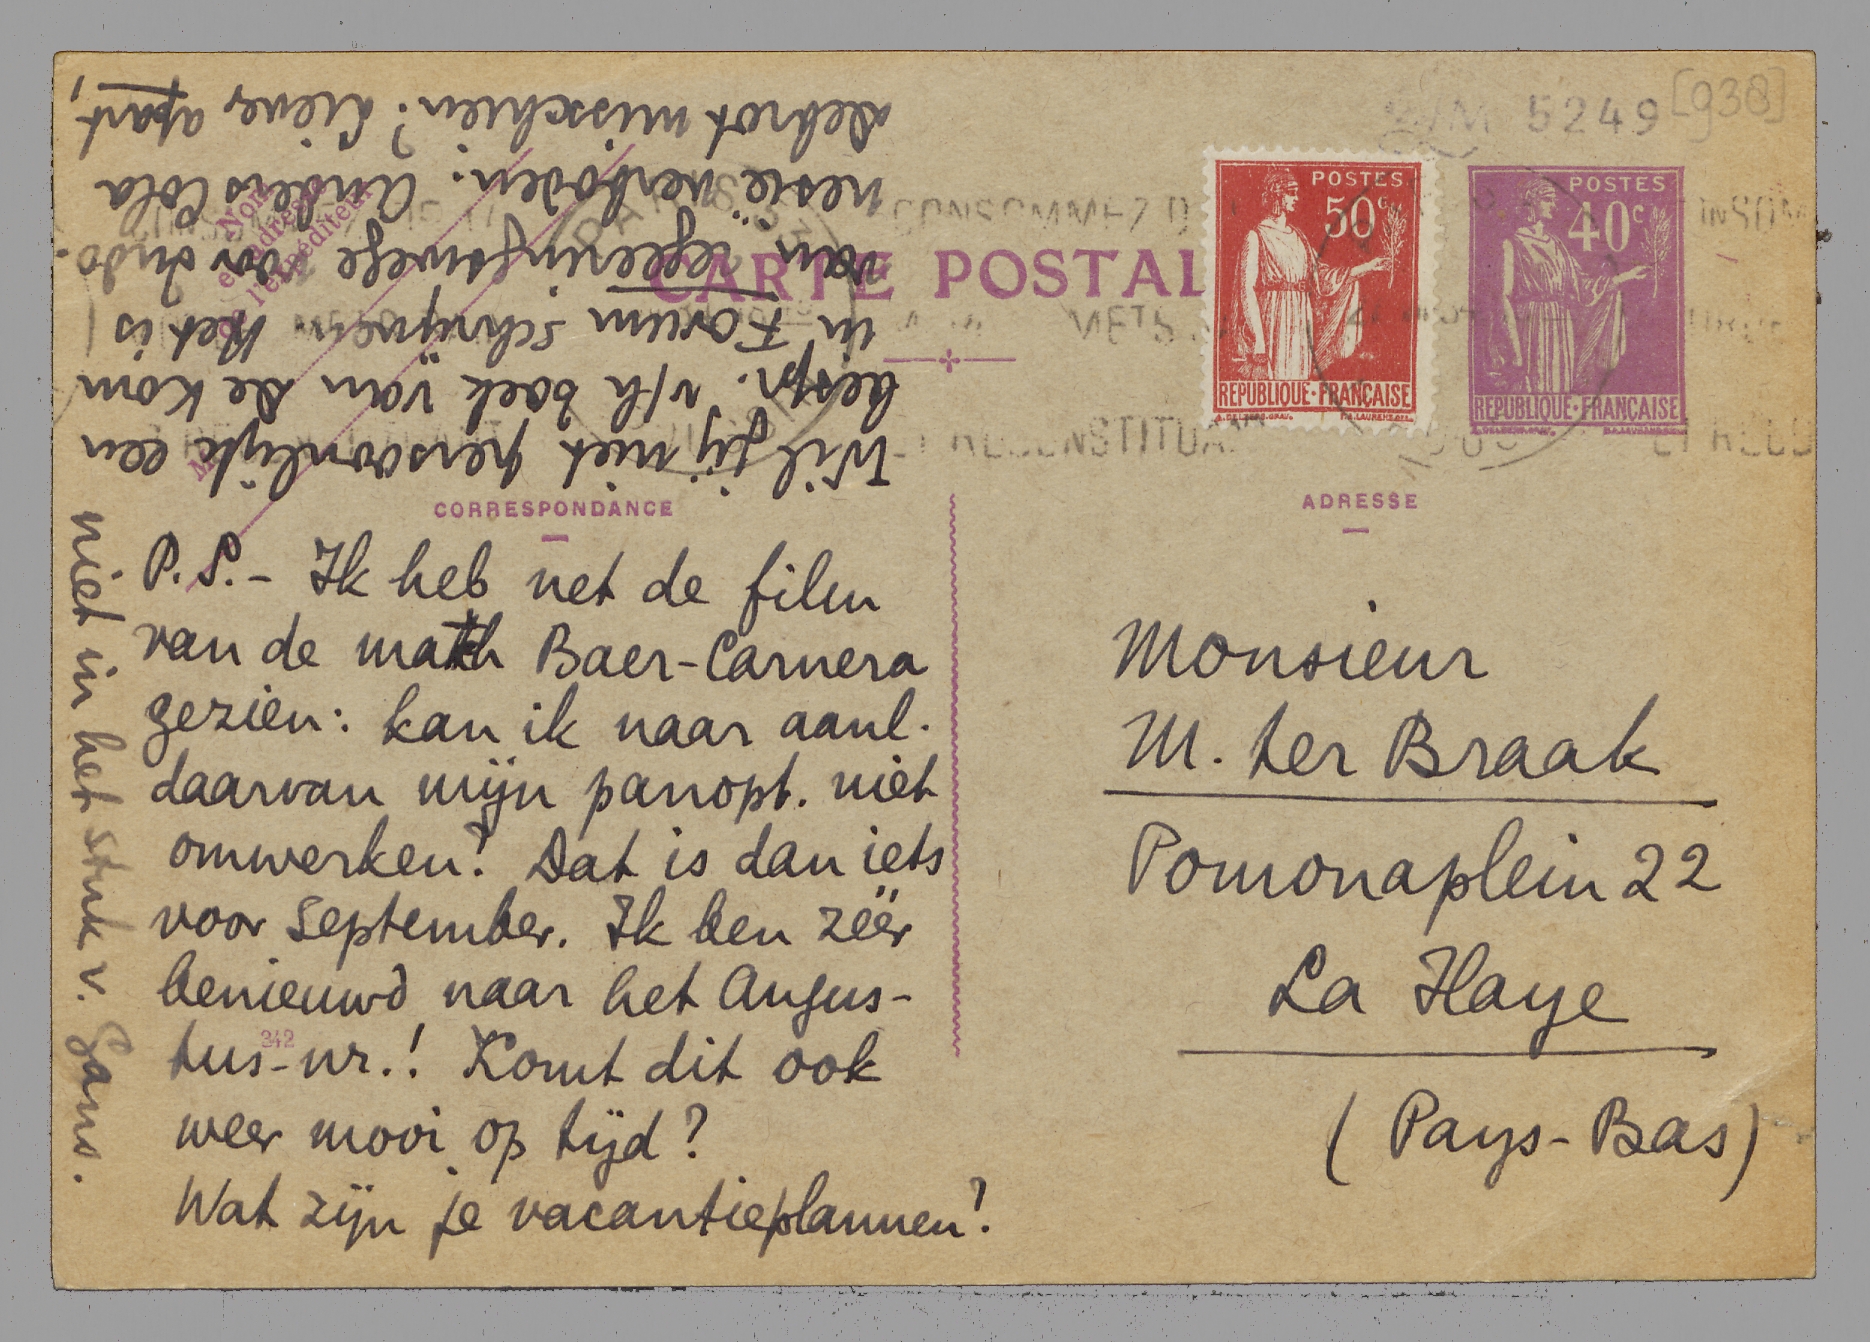 M 5249 [938]
POSTES
50c
REPUBLIQUE·FRANÇAISE
POSTES
40c
REPUBLIQUE·FRANÇAISE
CARTE POSTAL
Nom
et adresse
de l'expéditeur
CORRESPONDANCE
ADRESSE
P.S. – Ik heb net de film
van de match Baer-Carnera
gezien: kan ik naar aanl.
daarvan mijn panopt. niet
omwerken? Dat is dan iets
voor September. Ik ben zéér
benieuwd naar het Augus-
tus-nr.! Komt dit ook
weer mooi op tijd?
Wat zijn je vacantieplannen?
342
Wil jij niet persoonlijk een
bespr. v/h boek van de Kom
in Forum schrijven? Het is
van regeeringswege voor Indo-
nesië verboden. Anders Cola
Debrot misschien? Liever apart,
niet in het stuk v. Gans.
Monsieur
M. ter Braak
Pomonaplein 22
La Haye
(Pays-Bas)